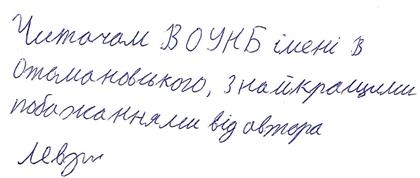 Читачам ВОУНБ імені В
Отамановського, з найкращими
побажаннями від автора